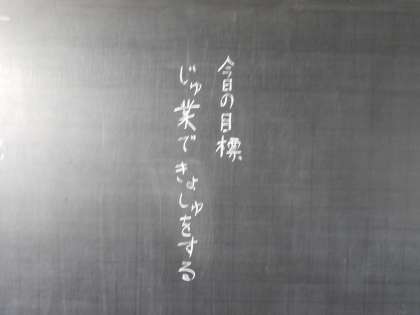 今日の目標
じゅ業できょしゅをする